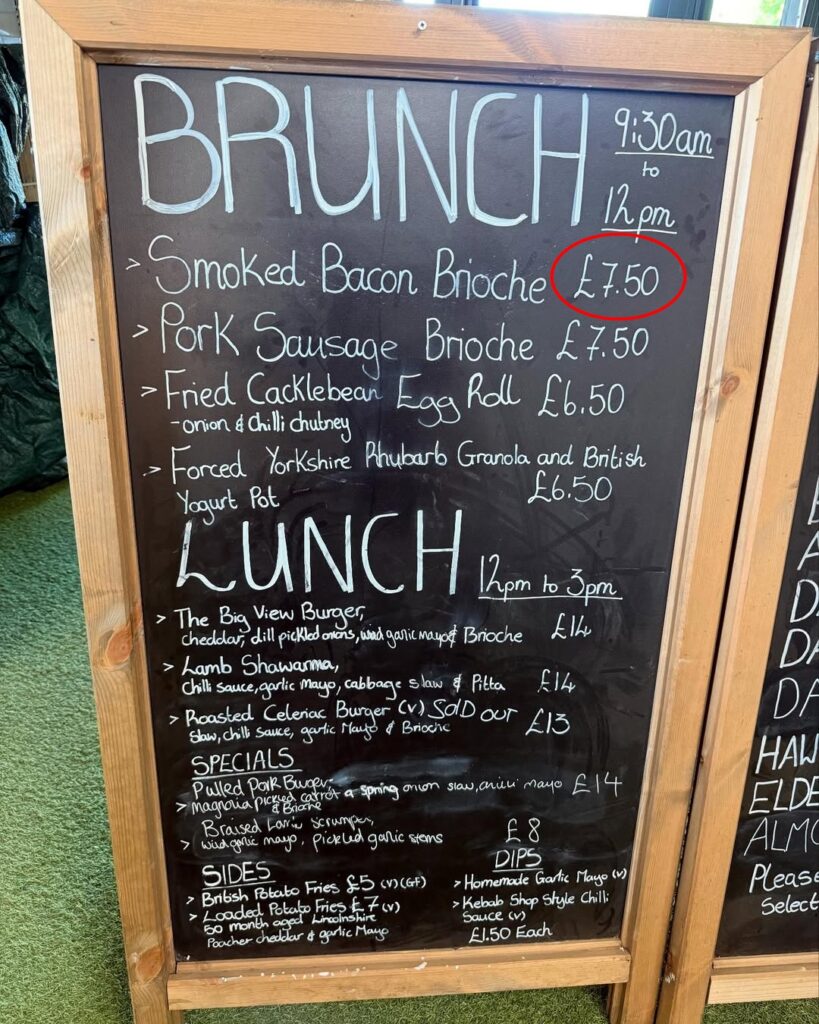 BRUNCH
9:30am
to
12pm
> Smoked Bacon Brioche £7.50
> Pork Sausage Brioche £7.50
> Fried Cacklebean Egg Roll £6.50
- onion & chilli chutney
> Forced Yorkshire Rhubarb Granola and British
Yogurt Pot £6.50
LUNCH 12pm to 3pm
> The Big View Burger, £14
cheddar, dill pickled onions, wild garlic mayo & Brioche
> Lamb Shawarma,
chilli sauce, garlic Mayo, cabbage slaw & Pitta £14
> Roasted Celeriac Burger (v) SOLD OUT £13
slaw, chilli sauce, garlic Mayo & Brioche
SPECIALS
Pulled Pork Burger-
> magnolia pickled carrot & spring onion slaw, chilli mayo £14
& Brioche
Braised Lamb
> wild garlic mayo, pickled garlic stems £8
SIDES
> British Potato Fries £5 (v)(GF)
> Loaded Potato Fries £7 (v)
50 month aged Lincolnshire
Poacher cheddar & garlic Mayo
DIPS
> Homemade Garlic Mayo (v)
> Kebab Shop Style Chilli
Sauce (v)
£1.50 Each
DA
DA
DA
HAW
ELDE
ALMO
Please
Select